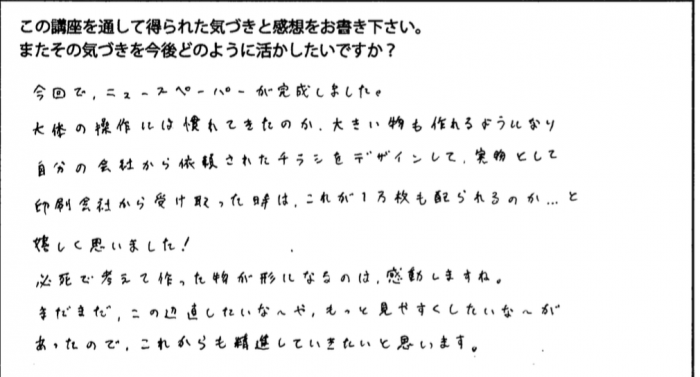 この講座を通して得られた気づきと感想をお書き下さい。
またその気づきを今後どのように活かしたいですか？
今回で、ニュースペーパーが完成しました。
大体の操作には慣れてきたのか、大きい物も作れるようになり
自分の会社から依頼されたチラシをデザインして、実物として
印刷会社から受け取った時は、これが1万枚も配られるのか…と
嬉しく思いました!
必死で考えて作った物が形になるのは、感動しますね。
まだまだ、この辺直したいな～や、もっと見やすくしたいな～が
あったので、これからも精進していきたいと思います。